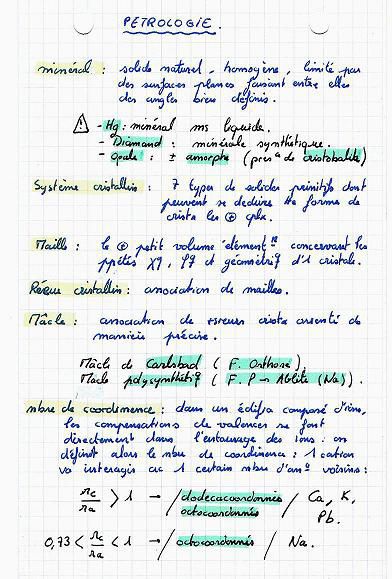 PETROLOGIE.
minéral : solide naturel, homogène, limité par
des surfaces planes faisant entre elles
des angles bien définis.
⚠ - Hg : minéral ms liquide.
- Diamand : minérale synthétique.
- opale : ± amorphe (pres° de cristobalite)
Système cristallin : 7 types de solides primitifs dont
peuvent se déduire les formes de
cristallines ⊕ cplx.
Maille : le ⊕ petit volume élément re concervant les
ppétés χq, φq et géométriq d'1 cristale.
Réseau cristallin : association de mailles.
Mâcle : association de cristaux orienté de
manière précise.
Mâcle de Carlsbad ( F. Orthose ).
Macle polysynthétiq ( F. P → Ablite (Na) ).
nbre de coordinence : dans un édifice composé d'ions,
les compensations de valences se font
directement dans l'entourage des ions : on
définit alors le nbre de coordinence : 1 cation
va interagir ac 1 certain nbre d'an° voisins :
rc/ra > 1 → / dodecacoordonnés octocoordonnés / Ca, K, Pb.
0,73 < rc/ra < 1 → / octocoordonnés / Na.